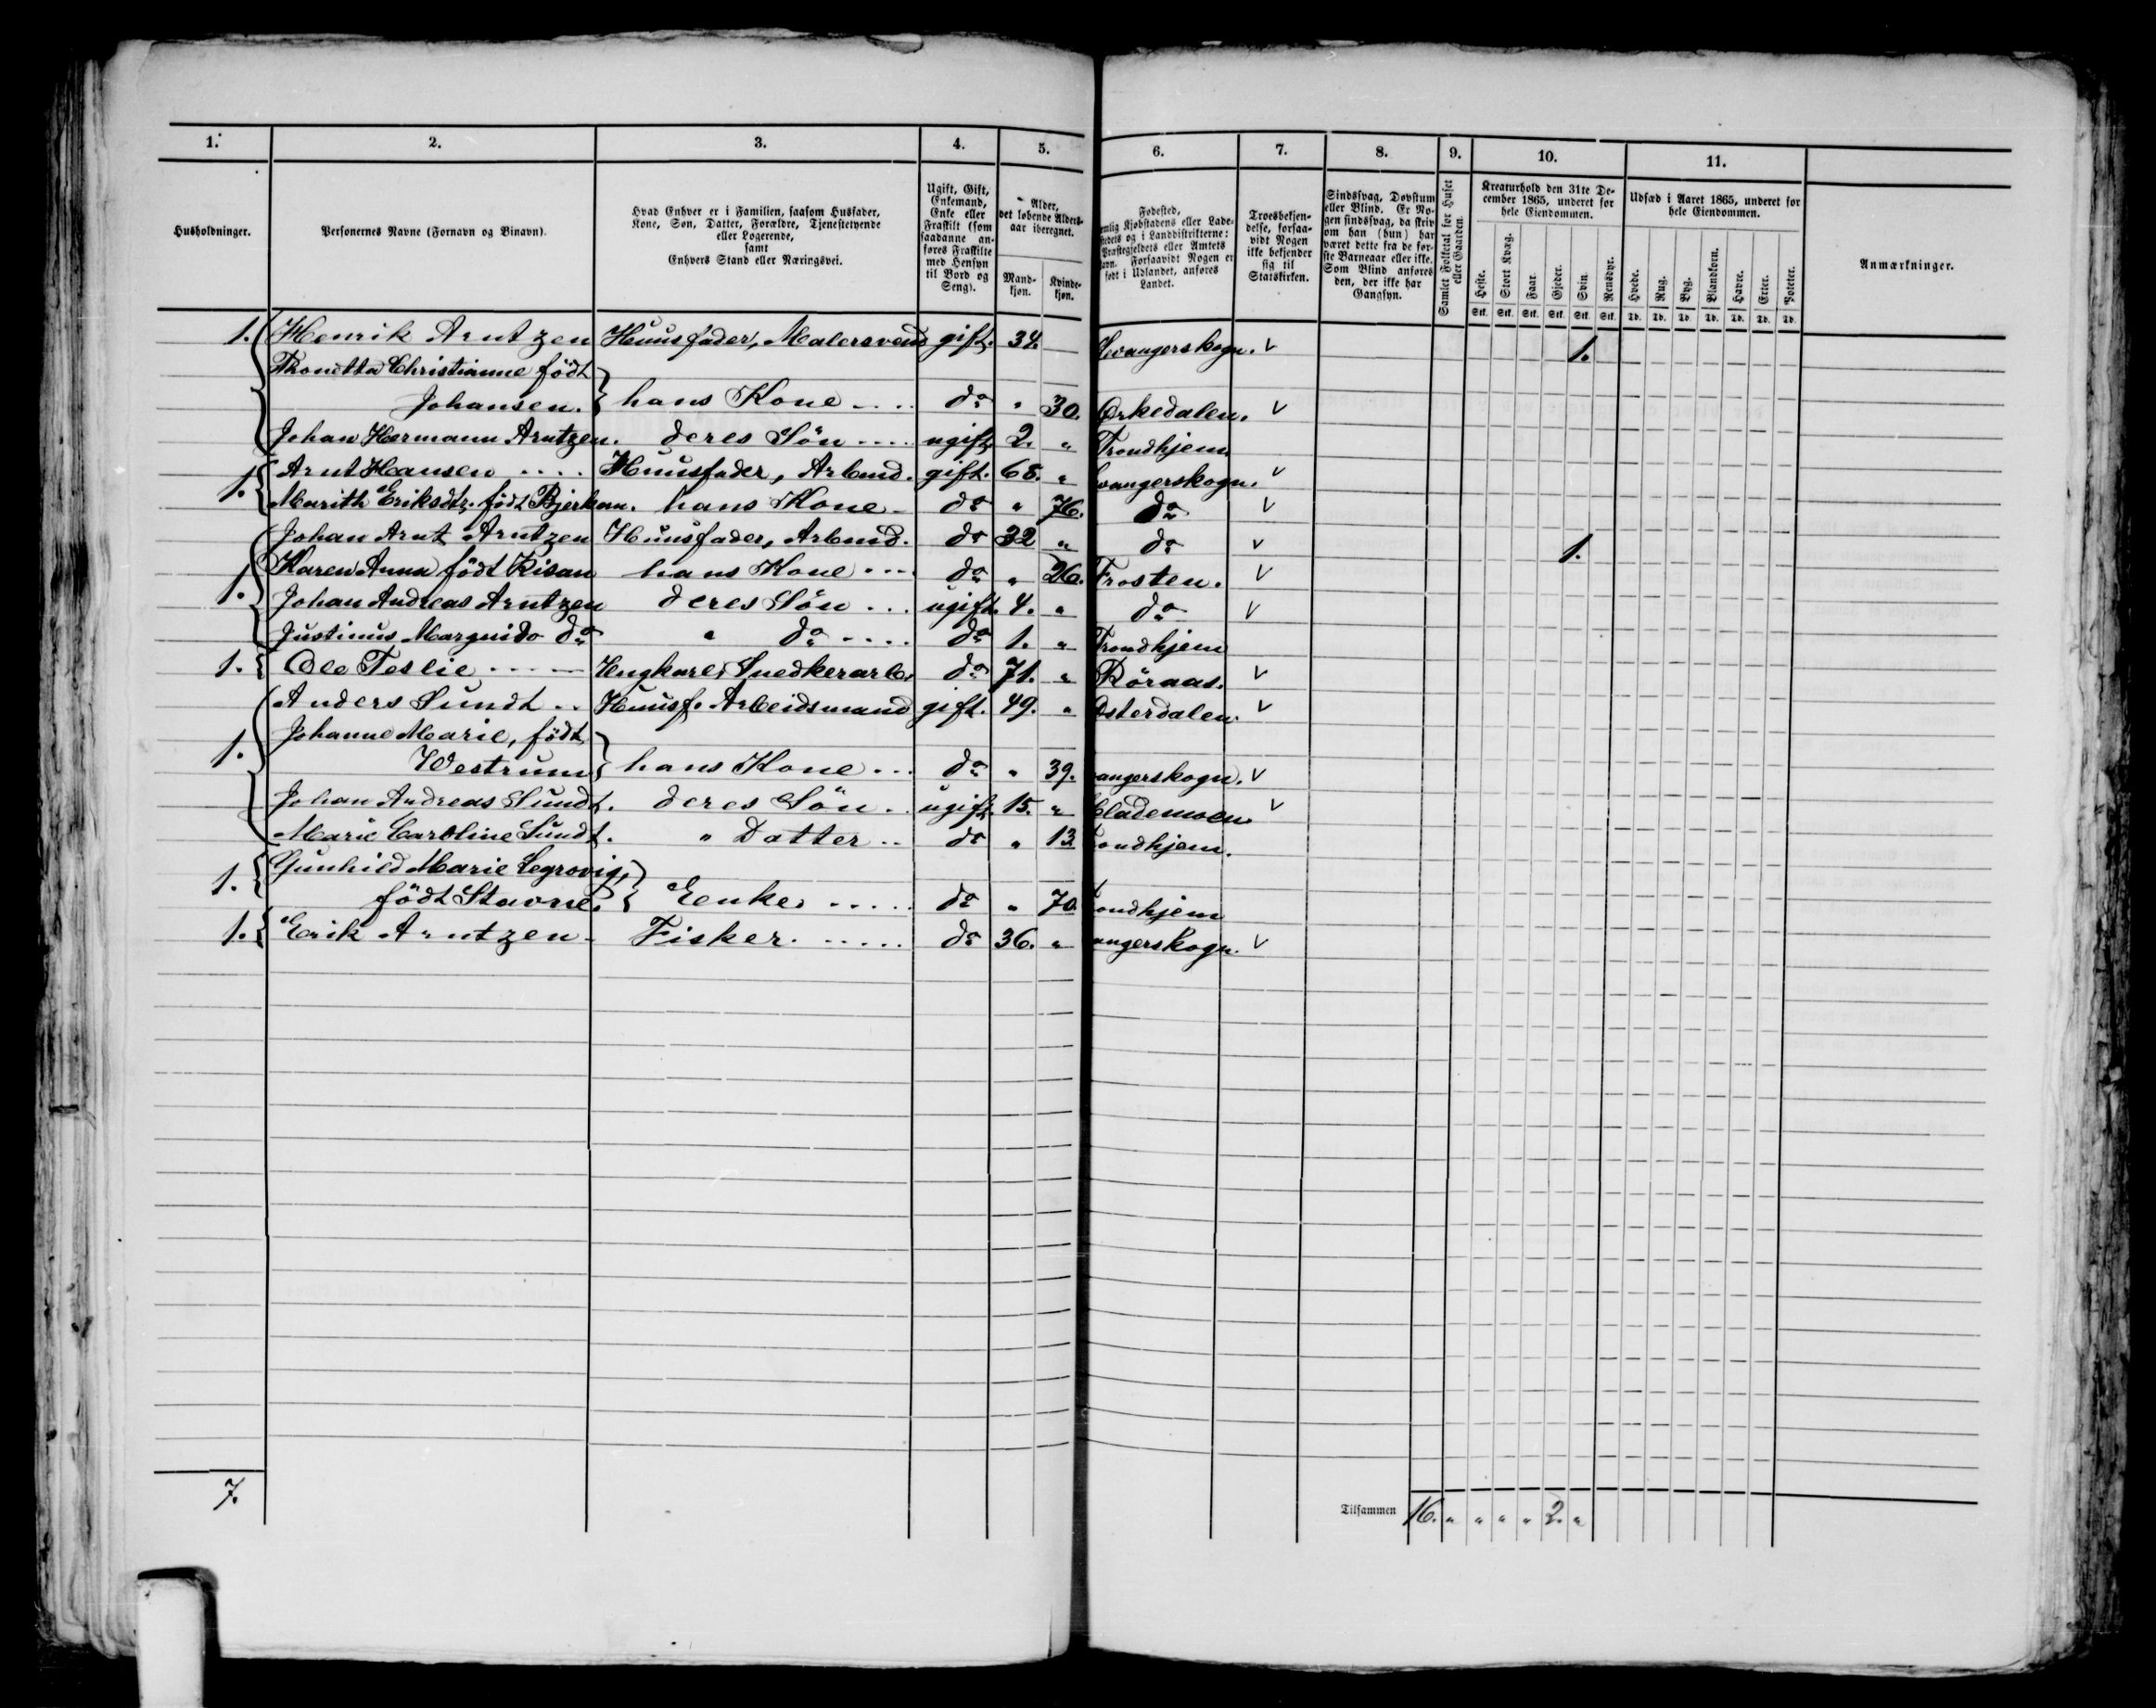 1. 2. 3. 4. 5. 6. 7. 8. 9. 10. 11.
Husholdninger.
Personernes Navne (Fornavn og Binavn).
Hvad Enhver er i Familien, saasom Husfader,
Kone, Søn, Datter, Forældre, Tjenestetyende
eller Logerende,
samt
Enhvers Stand eller Næringsvei.
Ugift, Gift,
Enkemand,
Enke eller
Fraskilt (som
saadanne an-
føres Fraskilte
med Hensyn
til Bord og
Seng).
Alder,
det løbende Alders-
aar iberegnet.
Mand-
kjøn.
Kvinde-
kjøn.
Fødested,
mlig Kjøbstadens eller Lade-
stedets og i Landdistrikterne:
Præstegjeldets eller Amtets
avn. Forsaavidt Nogen er
født i Udlandet, anføres
Landet.
Troesbekjen-
delse, forsaa-
vidt Nogen
ikke bekjender
sig til
Statskirken.
Sindssvag, Døvstum
eller Blind. Er No-
gen sindssvag, da skriv
om han (hun) har
været dette fra de før-
ste Barneaar eller ikke.
Som Blind anføres
den, der ikke har
Gangsyn.
Gamlet Folketal for Huset
eller Gaarden.
Kreaturhold den 31te De-
cember 1865, underet for
hele Eiendommen.
Heste. Stort Kvæg. Faar. Gjeder. Svin. Rensdyr.
Stk. Stk. Stk. Stk. Stk. Stk.
Udsæd i Aaret 1865, underet for
hele Eiendommen.
Hvede. Rug. Byg. Blandkorn. Havre. Erter. Poteter.
Td. Td. Td. Td. Td. Td. Td.
Anmærkninger.
1. Henrik Arntzen Huusfader, Malersvend gift. 34. Levangerskogn. v 1.
Christianne født
Johansen. hans Kone do " 30. Orkedalen. v
Johan Hermann Arntzen. deres Søn ugift 2. " Trondhjem
1. Arnt Hansen Huusfader, Arbmd. gift. 68. " vangerskogn. v
Marith Eriksdtr. født Bjerkan. hans Kone do " 76. do v
1. Johan Arnt Arntzen Huusfader, Arbmd. do 32 " do v 1.
Karen Anna født Risan hans Kone do " 26. Frosten. v
Johan Andreas Arntzen deres Søn ugift. 4. " do v
Justinus Marguido do " do do 1. " Trondhjem
1. Ole Teslie Ungkarl, Snedkerarb. do 71. " Röraas. v
1. Anders Sundt Huusf. Arbeidsmand gift. 49. " Osterdalen. v
Johanne Marie, født
Westrum hans Kone do " 39. angerskogn. v
Johan Andreas Sundt. deres Søn ugift. 15. " Lademoen v
Marie Caroline Sundt. " Datter do " 13 ondhjem.
1. Gunhild Marie Segrovig,
født Stavne. Eenke. do " 70. ondhjem
1. Erik Arntzen Fisker. do 36. " angerskogn. v
7. Tilsammen 16. " " " " 2. "